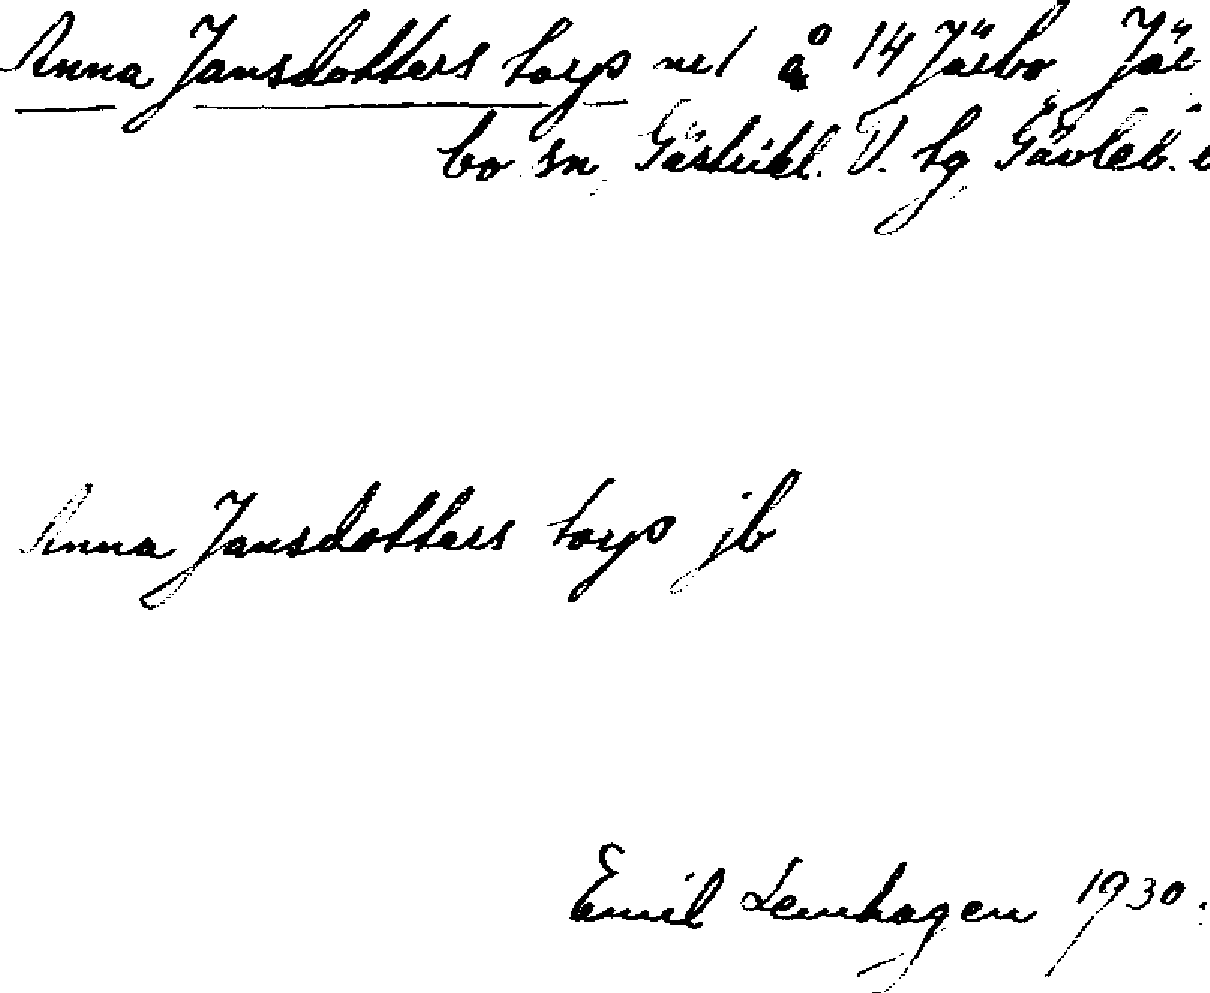 Anna Jansdotters torp nr 1 å 14 Järbo Jär
bo sn Gästrikl. V. tg Gävleb. l
Anna Jansdotters torp jb
Emil Lenhagen 1930.